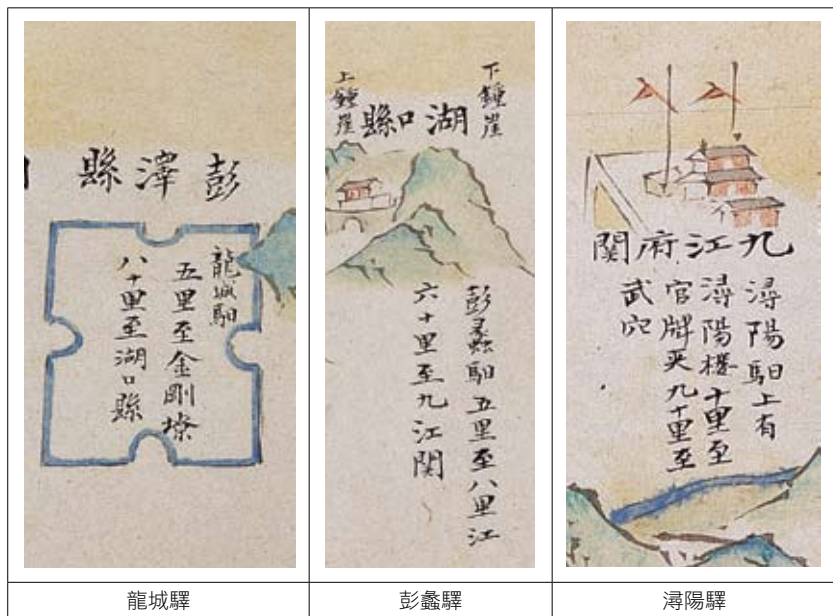 彭澤縣
龍城馹
五里至金剛
八十里至湖口縣
下鍾崖
湖口縣
上鍾崖
彭蠡馹五里至八里江
六十里至九江関
九江府関
潯陽馹上有
潯陽樓十里至
官牌夾九十里至
武穴
龍城驛
彭蠡驛
潯陽驛